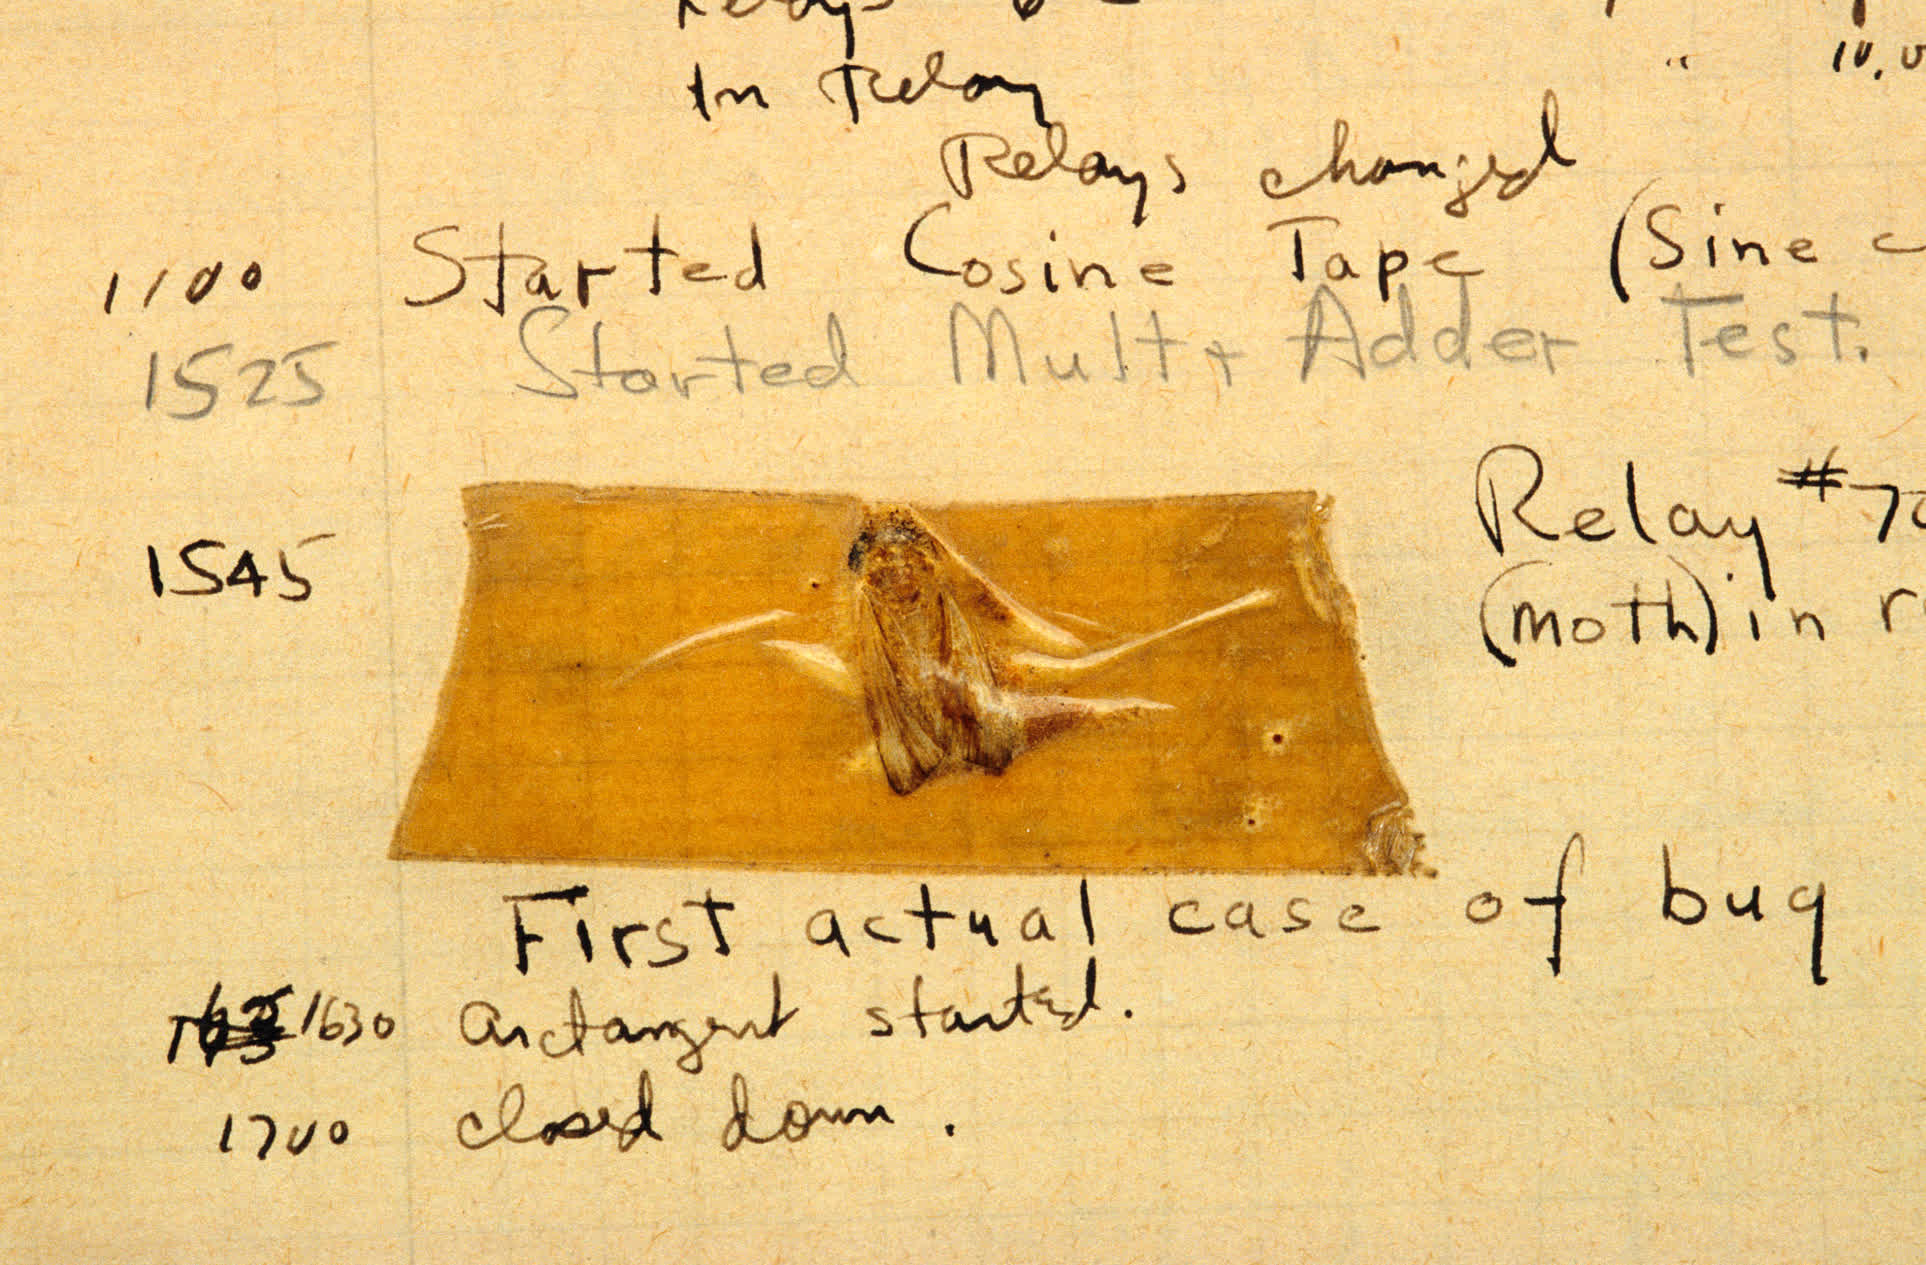 In Relay
Relays changed
1100 Started Cosine Tape (Sine
1525 Started Mult + Adder Test.
1545 Relay #70
(moth) in r
First actual case of bug
1630 arctangent started.
1700 closed down.